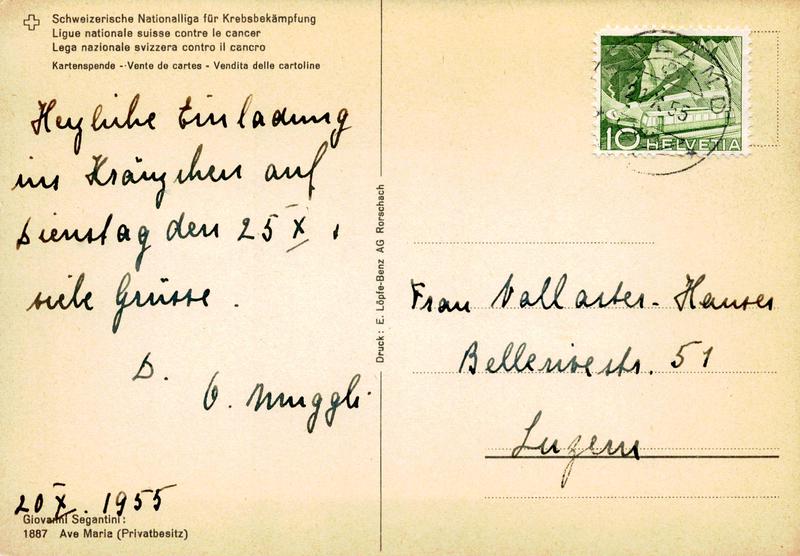 Schweizerische Nationalliga für Krebsbekämpfung
Ligue nationale suisse contre le cancer
Lega nazionale svizzera contro il cancro
Kartenspende - Vente de cartes - Vendita delle cartoline
Herzliche Einladung
ins Kränzchen auf
Dienstag den 25 X.
viele Grüsse.
D.
O. Muggli
20 X. 1955
Giovanni Segantini:
1887 Ave Maria (Privatbesitz)
Druck: E. Löpfe-Benz AG Rorschach
10 HELVETIA
Frau Vallaster-Hauser
Bellerivestr. 51
Luzern